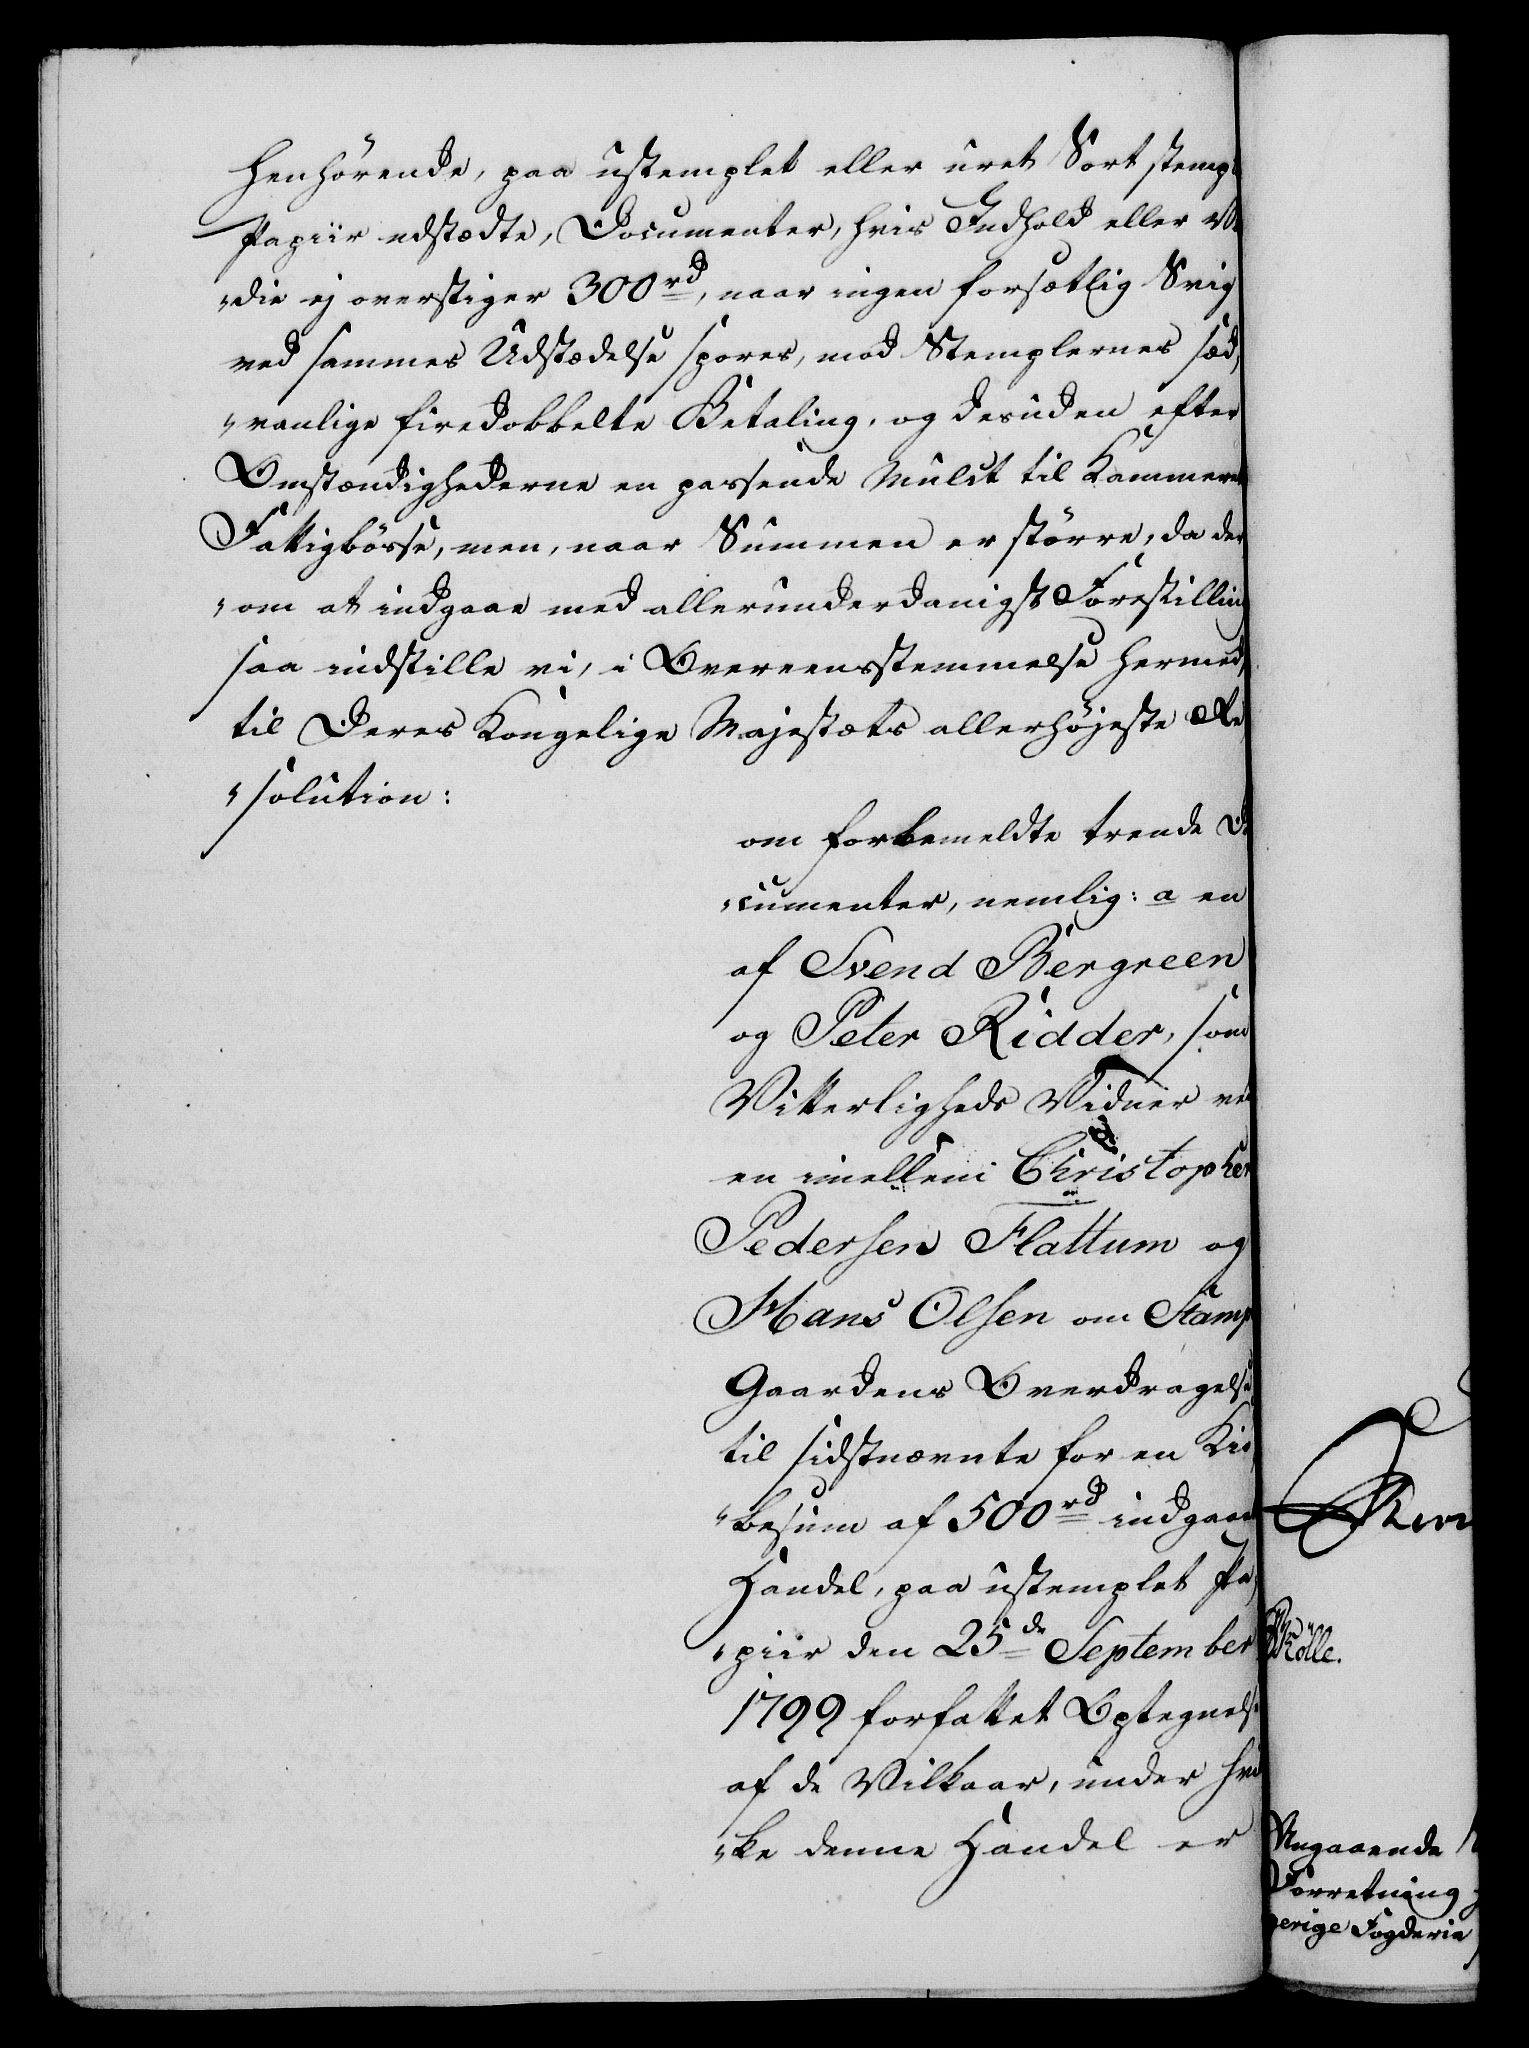 henhörende, paa ustemplet eller uret Sort stempl
Papiir udstædte, Documenter, hvis Indhold eller
"die ej overstiger 300 rd, naar ingen forsætlig Svig
ved sammes Udstædelse spores, mod Stemplernes sæd,
"vanlige firedobbelte Betaling, og desuden efter
Omstændighederne en passende Mulct til Kammerets
Fattigbösse, men, naar Summen er större, da der
"om at indgaae med allerunderdanigst Forestilling
saa indstille vi, i Overeensstemmelse hermed,
til Deres Kongelige Majestæts allerhöjeste Re
"solution:
om forbemeldte trende D
"cumenter, nemlig: a en
af Svend Bergreen
og Peter Ridder, som
Vitterligheds Vidner ved
en imellem Christopher
Pedersen Flattum og
Hans Olsen om Stamp
Gaardens Overdragelse
til sidstnævnte for en Kiö
"besum af 500 rd indgaaet
Handel, paa ustemplet Pa,
"piir den 25de September
1799 forfattet Optegnelse
af de Vilkaar, under hvil
"ke denne Handel er
Kölle.
Angaaende
Forretning
gerige Fogderie